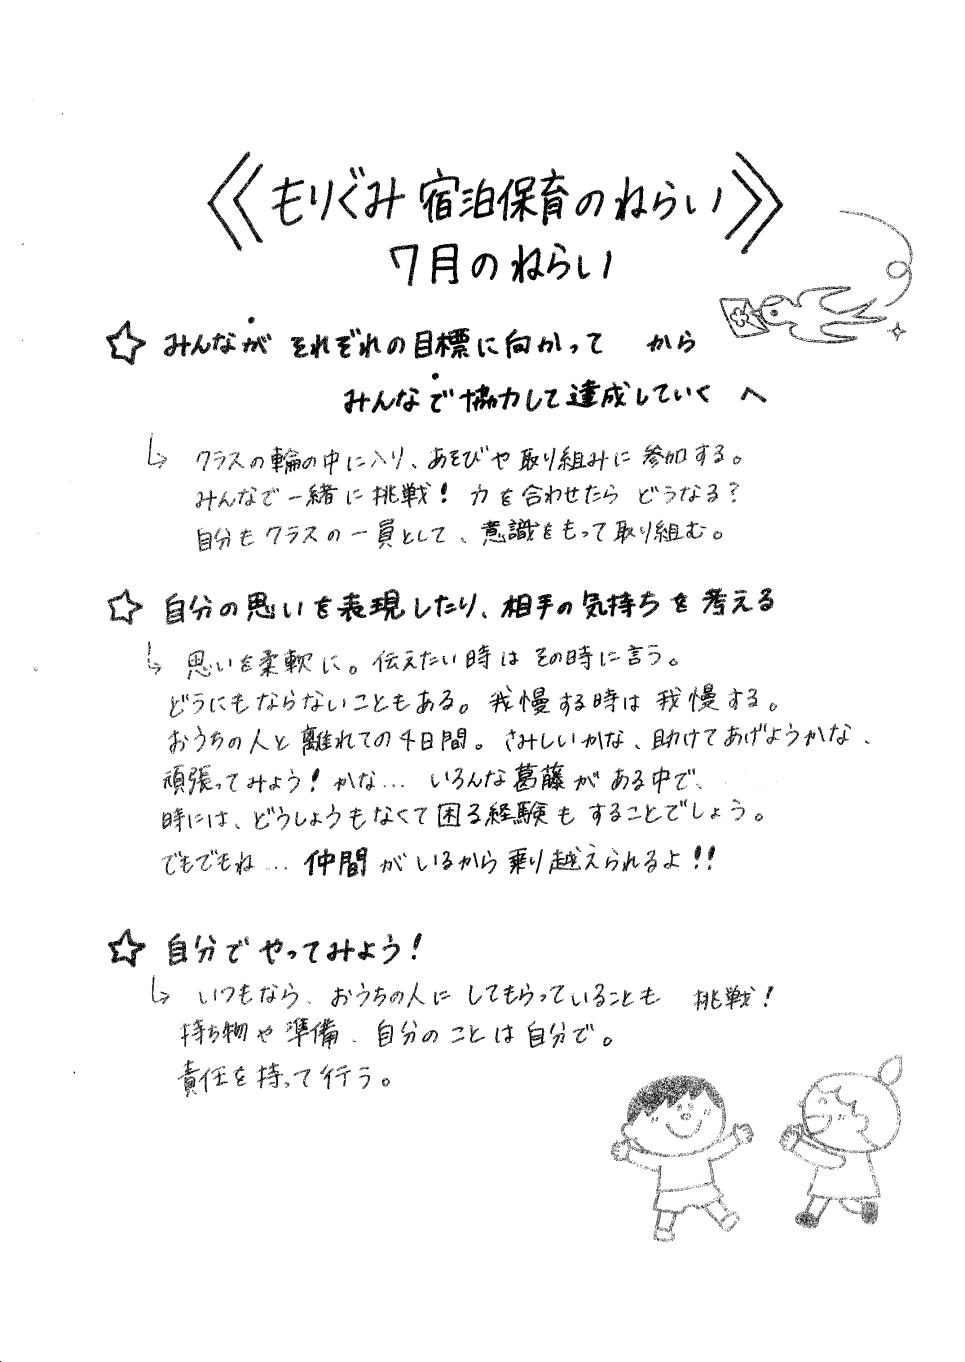 《もりぐみ 宿泊保育のねらい》
7月のねらい
☆ みんなが それぞれの目標に向かって から
みんなで協力して達成していく へ
↳ クラスの輪の中に入り、あそびや取り組みに参加する。
みんなで一緒に挑戦! 力を合わせたら どうなる?
自分もクラスの一員として、意識をもって取り組む。
☆ 自分の思いを表現したり、相手の気持ちを考える
↳ 思いを柔軟に。伝えたい時は その時に言う。
どうにもならないこともある。我慢する時は 我慢する。
おうちの人と離れての4日間。さみしいかな、助けてあげようかな、
頑張ってみよう! かな… いろんな葛藤がある中で、
時には、どうしょうもなくて困る経験もすることでしょう。
でもでもね… 仲間がいるから乗り越えられるよ!!
☆ 自分でやってみよう!
↳ いつもなら、おうちの人にしてもらっていることも 挑戦!
持ち物や準備、自分のことは自分で。
責任を持って行う。